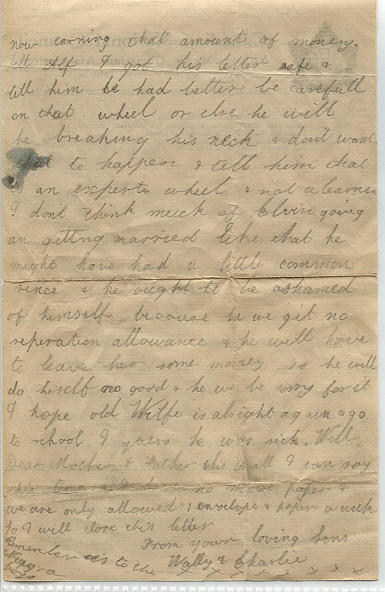 now earning that amounts of money.
Alf I got his letter safe &
tell him he had better be carefull
on that wheel or else he will
be breaking his neck & dont want
to happen & tell him that
is an experts wheel & not a learners
I dont think much of Elvin going
an getting married like that he
might have had a little common
sence & he ought to be ashamed
of himself because he we get no
seperation allowance & he will have
to leave her some money so he will
do hisself no good & he we be sorry for it
I hope old Wilfe is alright again & go
to school I guess he was sick. Well
Dear Mother & Father this is all I can say
this time no more paper &
we are only allowed 1 envelope & paper a week
so I will close this letter
From your loving Sons
Wally & Charlie
Remember us to the
x x x x x x x x x